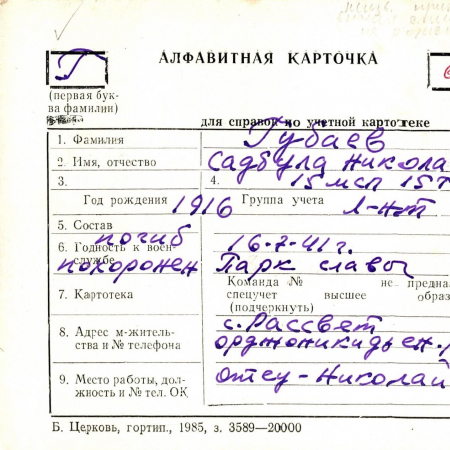 Г
АЛФАВИТНАЯ КАРТОЧКА
(первая бук-
ва фамилии)
для справок по учетной картотеке
1. Фамилия Губаев
2. Имя, отчество Садбулд Никола
3. 4. 15 мсп 15 т
Год рождения 1916 Группа учета л-нт
5. Состав погиб 16-7-41 г.
6. Годность к воен-
службе похоронен Парк славы
7. Картотека
Команда № не предна
спецучет высшее образ
(подчеркнуть)
8. Адрес м-житель-
ства и № телефона
с. Рассвет
орджоникидзен.
9. Место работы, дол-
жность и № тел. ОК
отец - Николай
Б. Церковь, гортип., 1985, з. 3589—20000